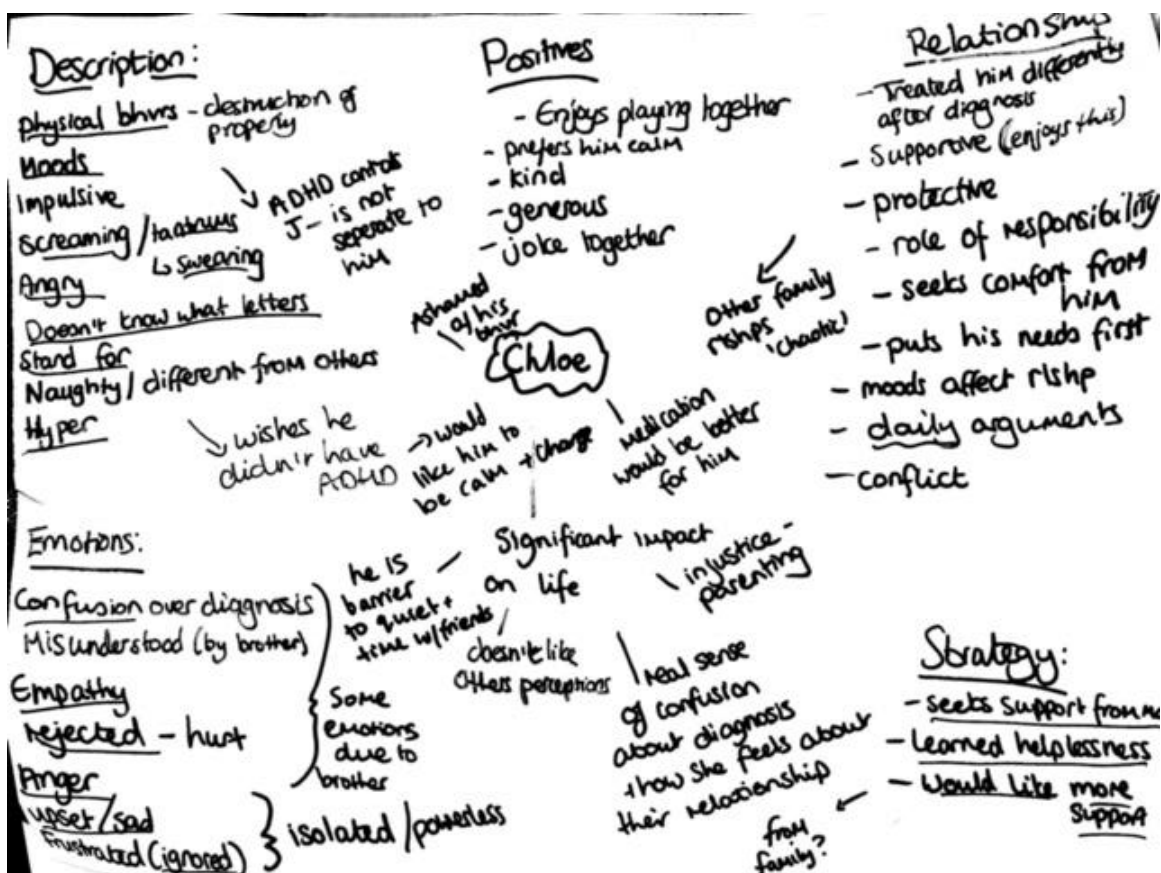 Description:
Physical bhvrs - destruction of
property
Moods
Impulsive
Screaming / tantrums
↳ swearing
Angry
Doesn't know what letters
Stand for
Naughty / different from others
Hyper
ADHD controls
J - is not
seperate to
him
wishes he
didn't have
ADHD
→ would
like him to
be calm + change
Positives
- Enjoys playing together
- prefers him calm
- kind
- generous
- joke together
Relationships
- Treated him differently
after diagnosis
- Supportive (enjoys this)
- protective
- role of responsibility
- seeks comfort from
him
- puts his needs first
- moods affect rlshp
- daily arguments
- conflict
Other family
rlshps
'chaotic'
Ashamed
of his
bhvr
Chloe
medication
would be better
for him
Significant impact
on life
he is
barrier
to quiet +
time w/friends
doesn't like
others perceptions
injustice -
parenting
real sense
of confusion
about diagnosis
+ how she feels about
their relationship
Emotions:
Confusion over diagnosis
Misunderstood (by brother)
Empathy
rejected - hurt
Anger
upset/sad
Frustrated (ignored)
Some
emotions
due to
brother
isolated / powerless
Strategy:
- seeks support from
- Learned helplessness
- Would like more
support
from
family?